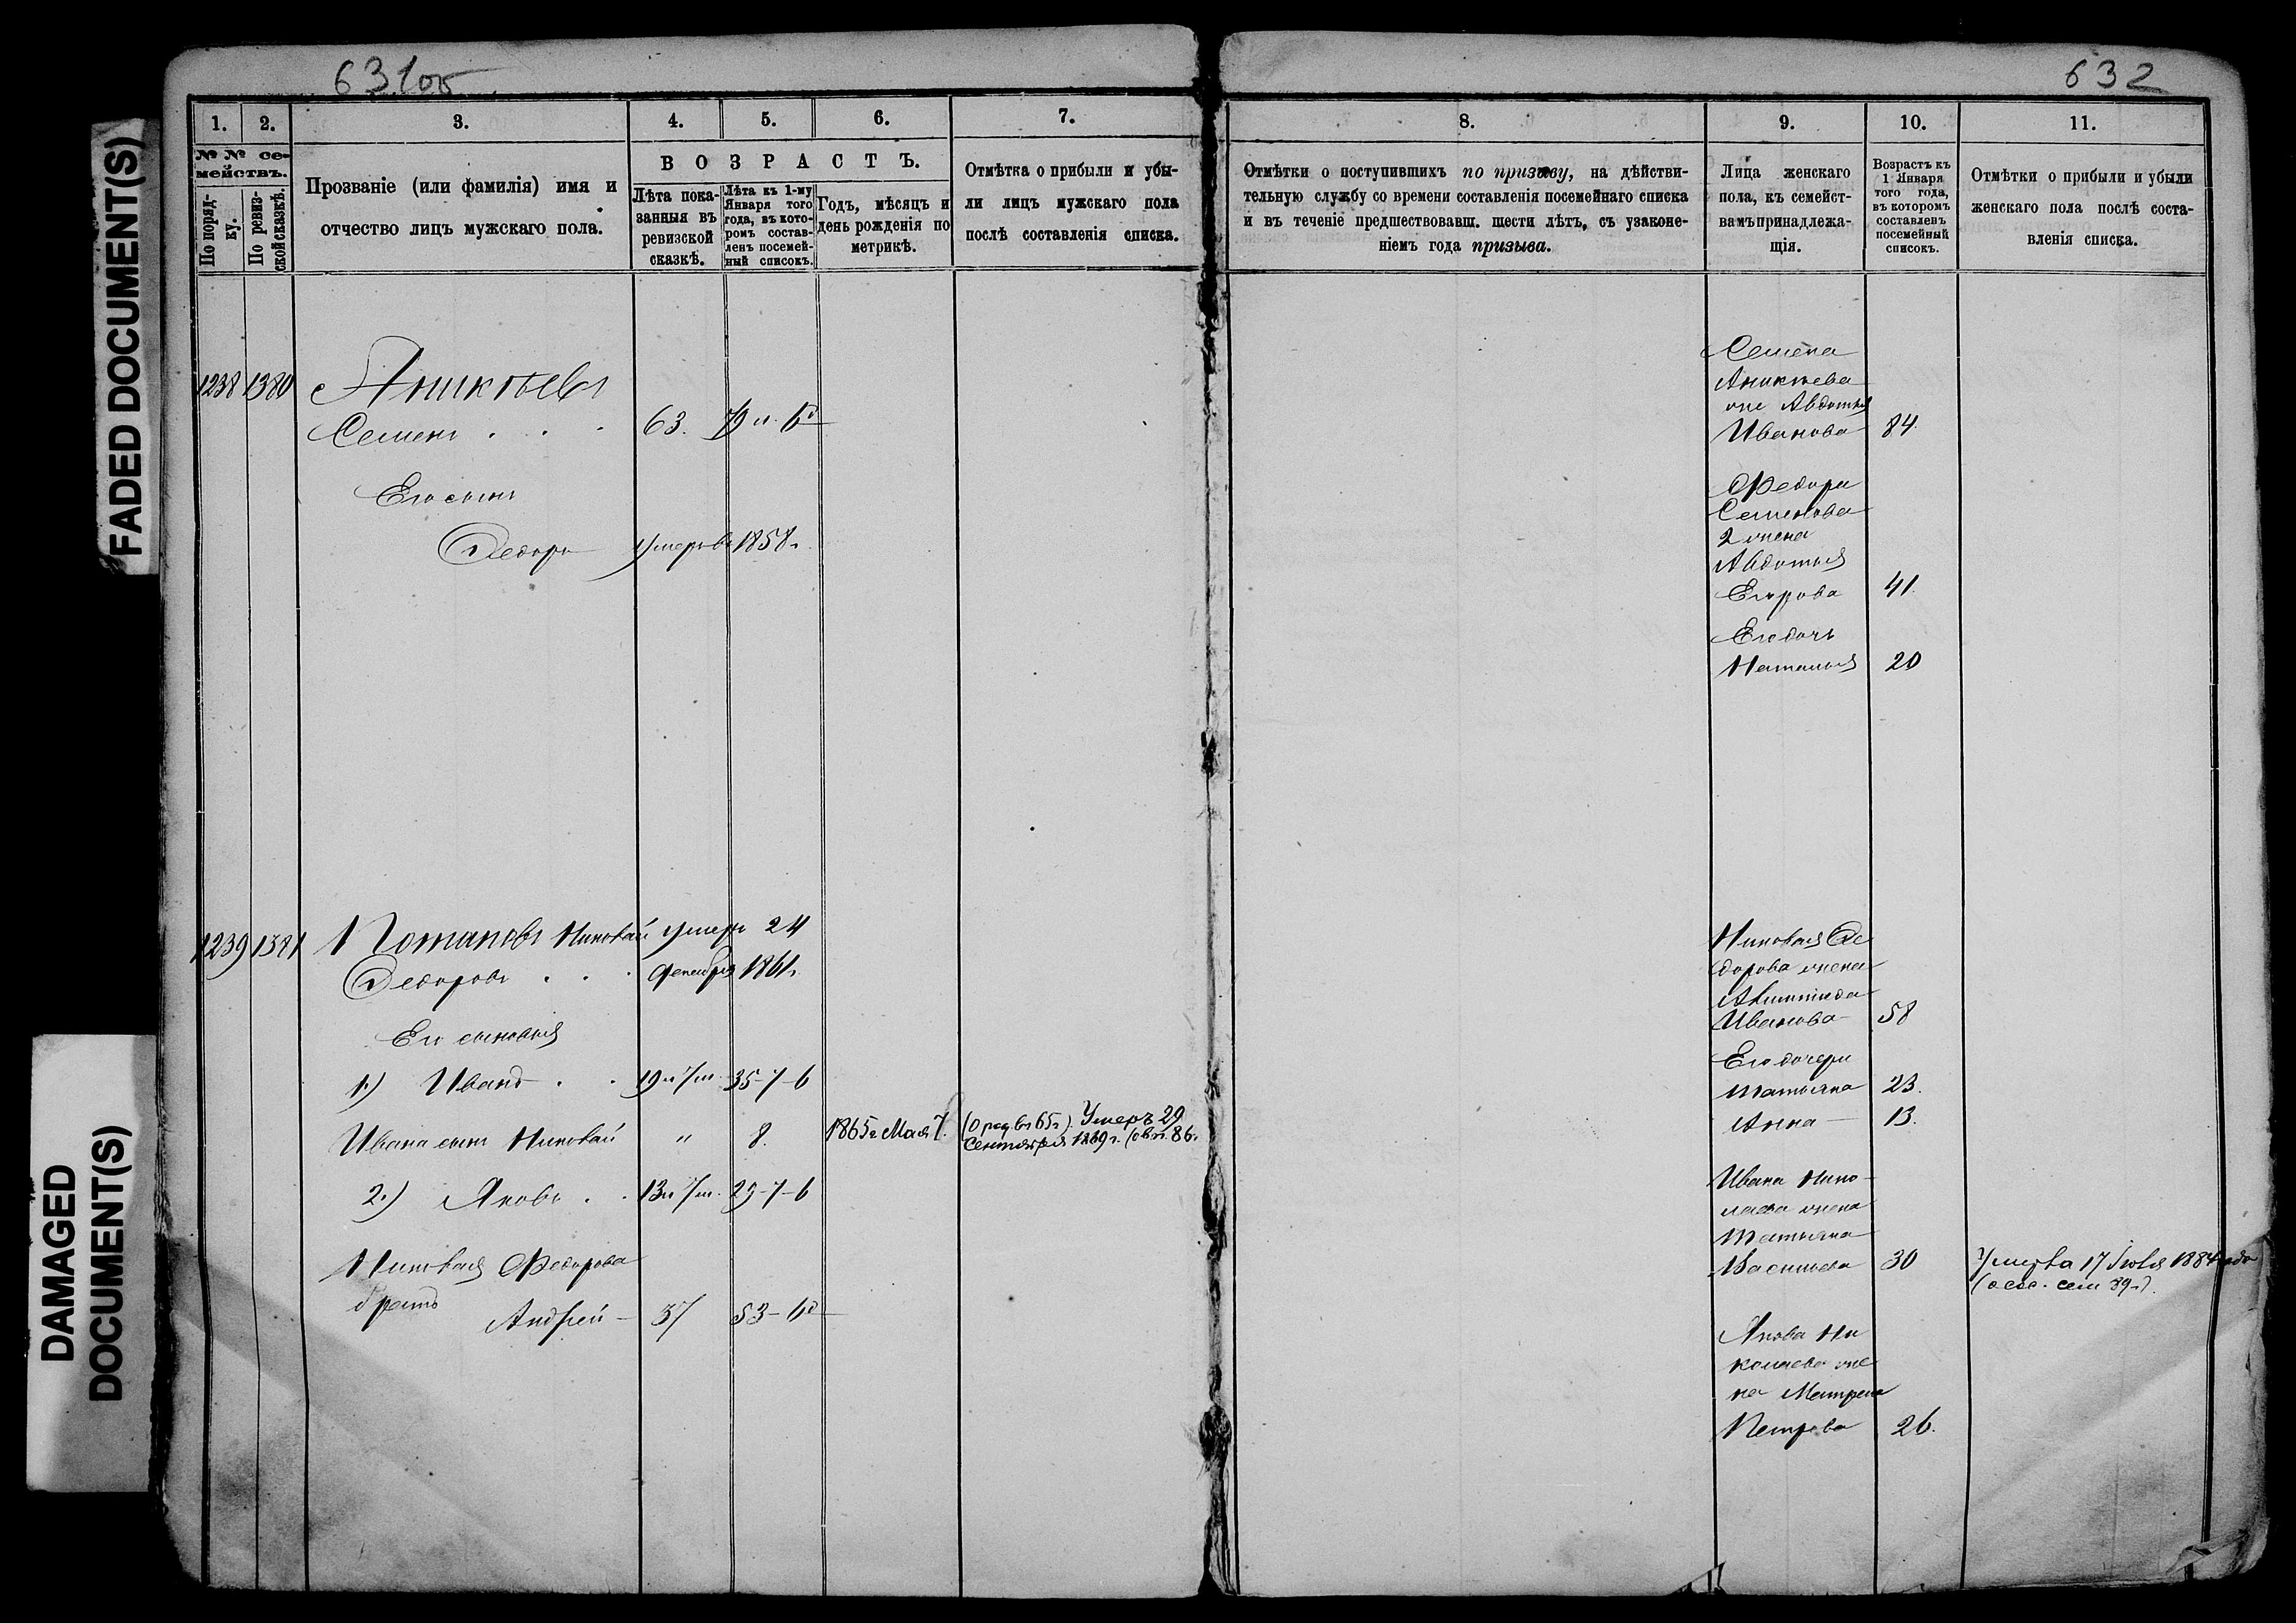 631об
632
FADED DOCUMENT(S)
DAMAGED
DOCUMENT(S)
1. 2. 3. 4. 5. 6. 7. 8. 9. 10. 11.
№ № се-
мействъ.
По поряд-
ку.
По ревиз-
ской сказкѣ.
Прозваніе (или фамилія) имя и
отчество лицъ мужскаго пола.
ВОЗРАСТЪ.
Лѣта пока-
занныя въ
ревизской
сказкѣ.
Лѣта къ 1-му
Января того
года, въ кото-
ромъ состав-
ленъ посемей-
ный списокъ.
Годъ, мѣсяцъ и
день рожденія по
метрикѣ.
Отмѣтка о прибыли и убы-
ли лицъ мужскаго пола
послѣ составленія списка.
Отмѣтки о поступившихъ по призыву, на дѣйстви-
тельную службу со времени составленія посемейнаго списка
и въ теченіе предшествовавш. шести лѣтъ, съ узаконе-
ніемъ года призыва.
Лица женскаго
пола, къ семейст-
вамъ принадлежа-
щія.
Возрастъ къ
1 Января
того года,
въ которомъ
составленъ
посемейный
списокъ.
Отмѣтки о прибыли и убыли
женскаго пола послѣ соста-
вленія списка.
1238 1380 Аникѣевъ
Семенъ . . . 63. 79
Его сынъ
Федоръ Умеръ въ 1858 г.
Семена
Аникѣева
жена Авдотья
Иванова 84.
Федора
Семенова
2 жена
Авдотья
Егорова 41.
Его дочь
Наталья 20
1239 1381 Потаповъ Николай умеръ 24
Федоровъ . . . декабря 1861 г.
Его сыновья
1.) Иванъ . . 19 и 7 м. 35-7-6
Ивана сынъ Николай " 8. 1865 г. Мая 7. (о род. въ 65 г.). Умеръ 29
Сентября 1869 г. 86.
2.) Яковъ . . 13 и 7 м. 29-7-6
Николая Федорова
братъ
Андрей – 37 53
Николая Фе
дорова жена
Иванова 58
Его дочери
Татьяна 23.
Анна – 13.
Ивана Нико-
лаева жена
Татьяна
Васильева 30 Умерла 17 Іюля 1884 года
39
Якова Ни
колаева же
на Матрена
Петрова 26.